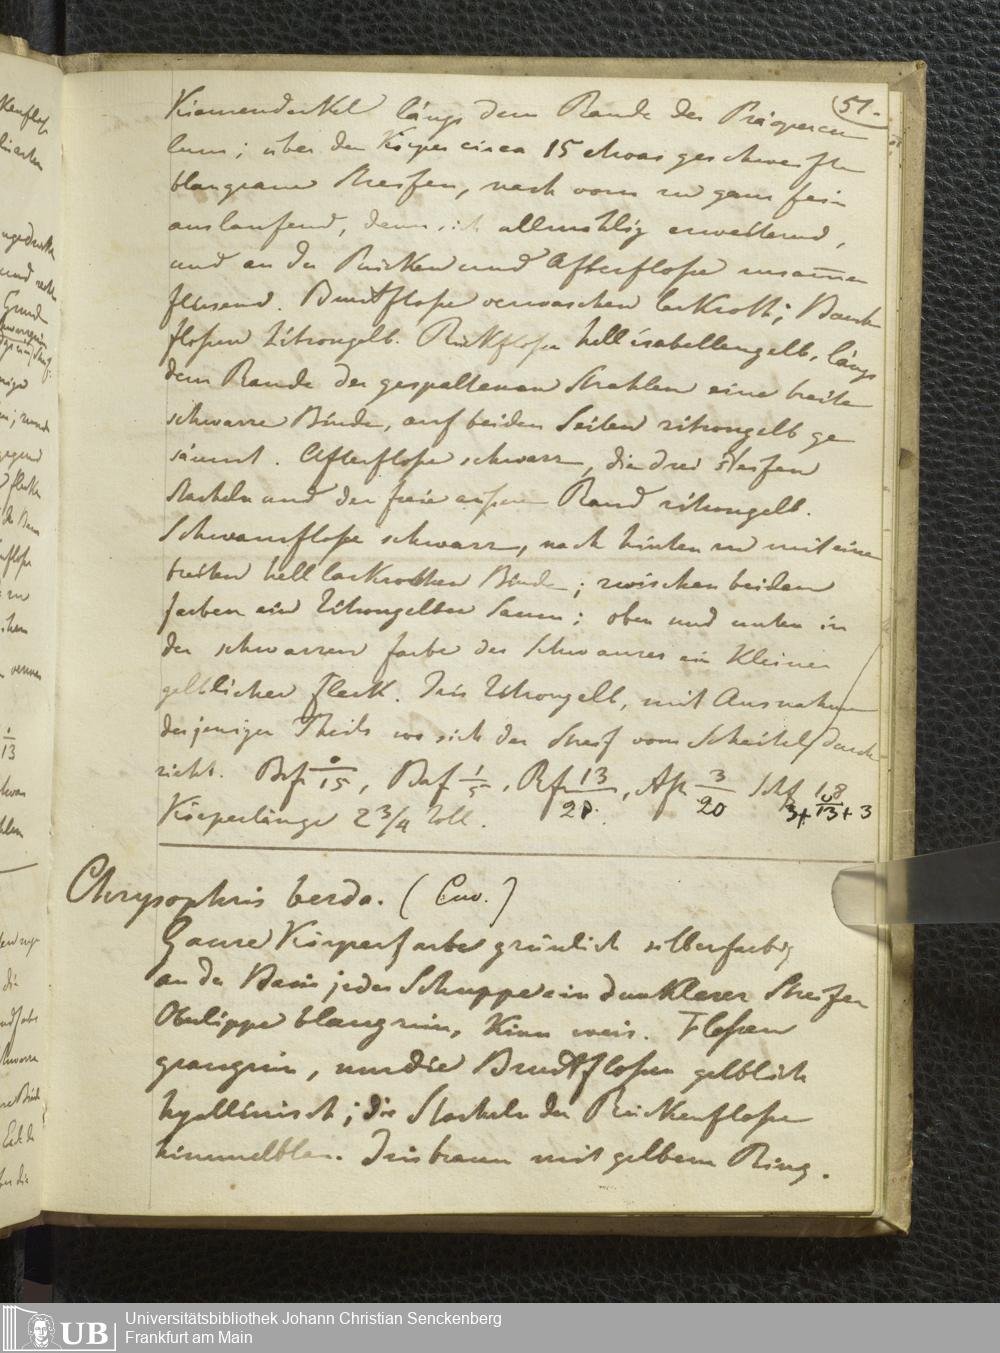 51.
Kiemendeckel längs dem Rande des Präopercu
lum; über den Körper circa 15 etwas geschweifte
blaugraue Streifen, nach vorn zu ganz fein
auslaufend, dann sich allmählig erweiternd,
und an der Rücken und Afterfloße zusam̄en
fliesend. Brustfloße verwaschen lackroth; Bauch
floßen Zitrongelb. Rückfloße hell isabellengelb, längs
dem Rande der gespaltenen Strahlen eine breite
schwarze Binde, auf beiden Seiten zitrongelb ge
säumt. Afterfloße schwarz, die drei steifen
Stacheln und der freie äußere Rand zitrongelb.
Schwanzfloße schwarz, nach hinten zu mit einer
breiten hell lackrothen Binde; zwischen beiden
farben ein Zitrongelber Saum; oben und unten in
der schwarzen farbe des Schwanzes ein kleiner
gelblicher Fleck. Iris Zitrongelb, mit Ausnahme
desjenigen Theils wo sich der Streif vom Scheitel durch
zieht. Brf 0/15, Baf 1/5, Rf 13/21, Afl 3/20 Schf
Körperlänge 2 3/4 Zoll.
Chrysophris berda. (Cuv.)
Ganze Körperfarbe grünlich silberfarbig
an der Basis jeder Schuppe ein dunklerer Streifen
Oberlippe blaugrün, Kinn weis. Floßen
graugrün, nur die Brustfloßen gelblich
hyalinisch; die Stacheln der Rückenfloße
himmelblau. Iris braun mit gelbem Ring.
UB
Universitätsbibliothek Johann Christian Senckenberg
Frankfurt am Main